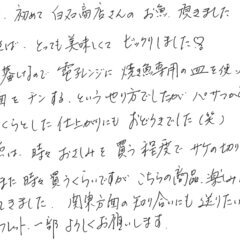 、初めて 白石商店さんの お魚 頂きました
ば、とっても美味しくて ビックリしました♡
暮しなので 電子レンジに 焼き魚専用の皿を使っ
面をチンする、というやり方でしたが パサつか
くらとした仕上がりにも おどろきでした(笑)
は、時々 おさしみを 買う程度で サケの切り
また 時々買うくらいですが こちらの商品、楽しみ
てきました。関東方面の知り合いにも 送りたい
フレット、一部 よろしくお願いします。